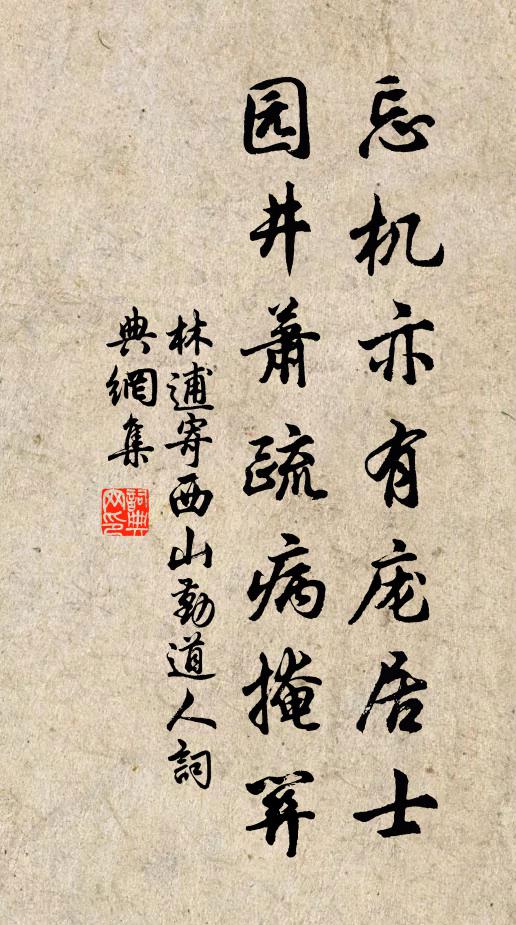 忘机亦有庞居士
园井萧疏病掩关
林逋寄西山勤道人詞
典網集
詞典网印